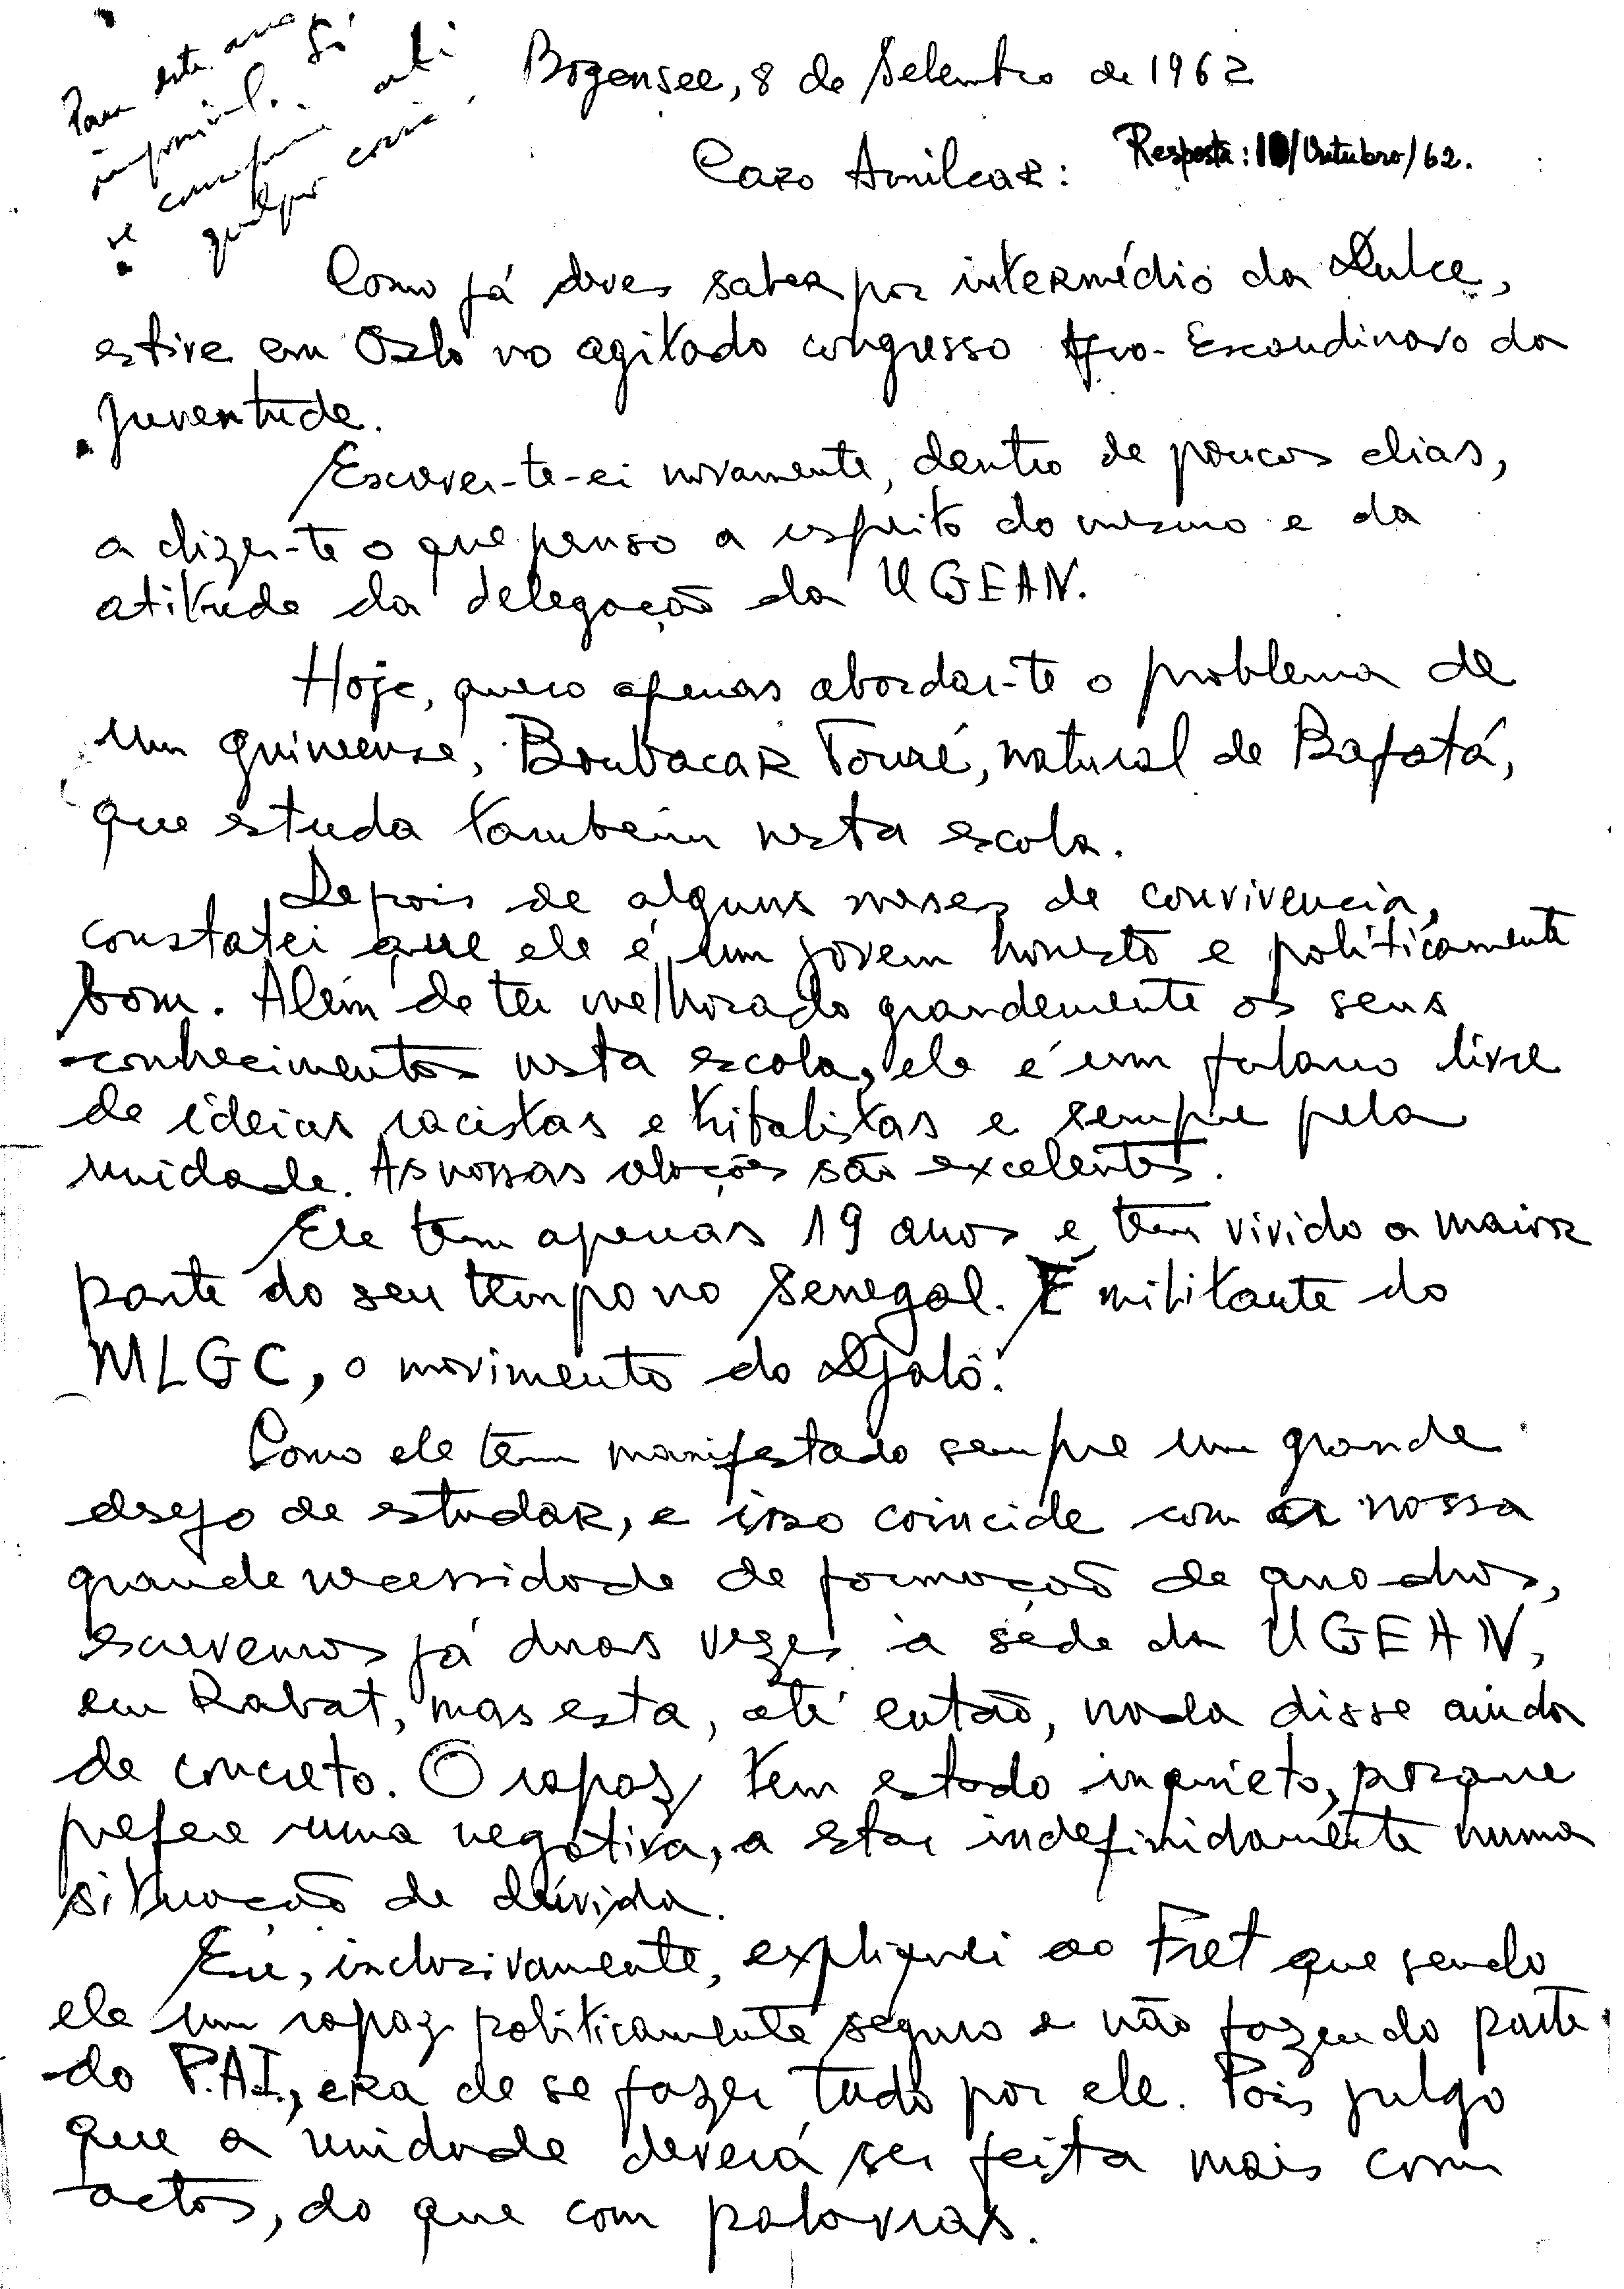 Para este ano
impossível. Só
se conseguirmos até
qualquer coisa.
Bogensee, 8 de Setembro de 1962
Resposta: 10/Outubro/62.
Caro Amilcar:
Como já deves saber por intermédio da Dulce,
estive em Oslo no agitado congresso Afro-Escandinavo da
Juventude.
Escrever-te-ei novamente, dentro de poucos dias,
a dizer-te o que penso a respeito do mesmo e da
atitude da delegação da UGEAN.
Hoje, quero apenas abordar-te o problema de
um guineense, Boubacar Touré, natural de Bafatá,
que estuda também nesta escola.
Depois de alguns meses de convivencia,
constatei que ele é um jovem honesto e políticamente
bom. Além de ter melhorado grandemente os seus
conhecimentos nesta escola, ele é um fulano livre
de ideias racistas e tribalistas e sempre pela
unidade. As nossas relações são excelentes.
Ele tem apenas 19 anos e tem vivido a maior
parte do seu tempo no Senegal. É militante do
MLGC, o movimento do Djaló.
Como ele tem manifestado sempre um grande
desejo de estudar, e isso coincide com a nossa
grande necessidade de formação de quadros,
escrevemos já duas vezes à séde da UGEAN,
em Rabat, mas esta, até então, nada disse ainda
de concreto. O rapaz tem estado inquieto, porque
prefere uma negativa, a estar indefinidamente numa
situação de dúvida.
Eu, inclusivamente, expliquei ao Fret que sendo
ele um rapaz politicamente seguro e não fazendo parte
do P.A.I., era de se fazer tudo por ele. Pois julgo
que a unidade deverá ser feita mais com
actos, do que com palavras.